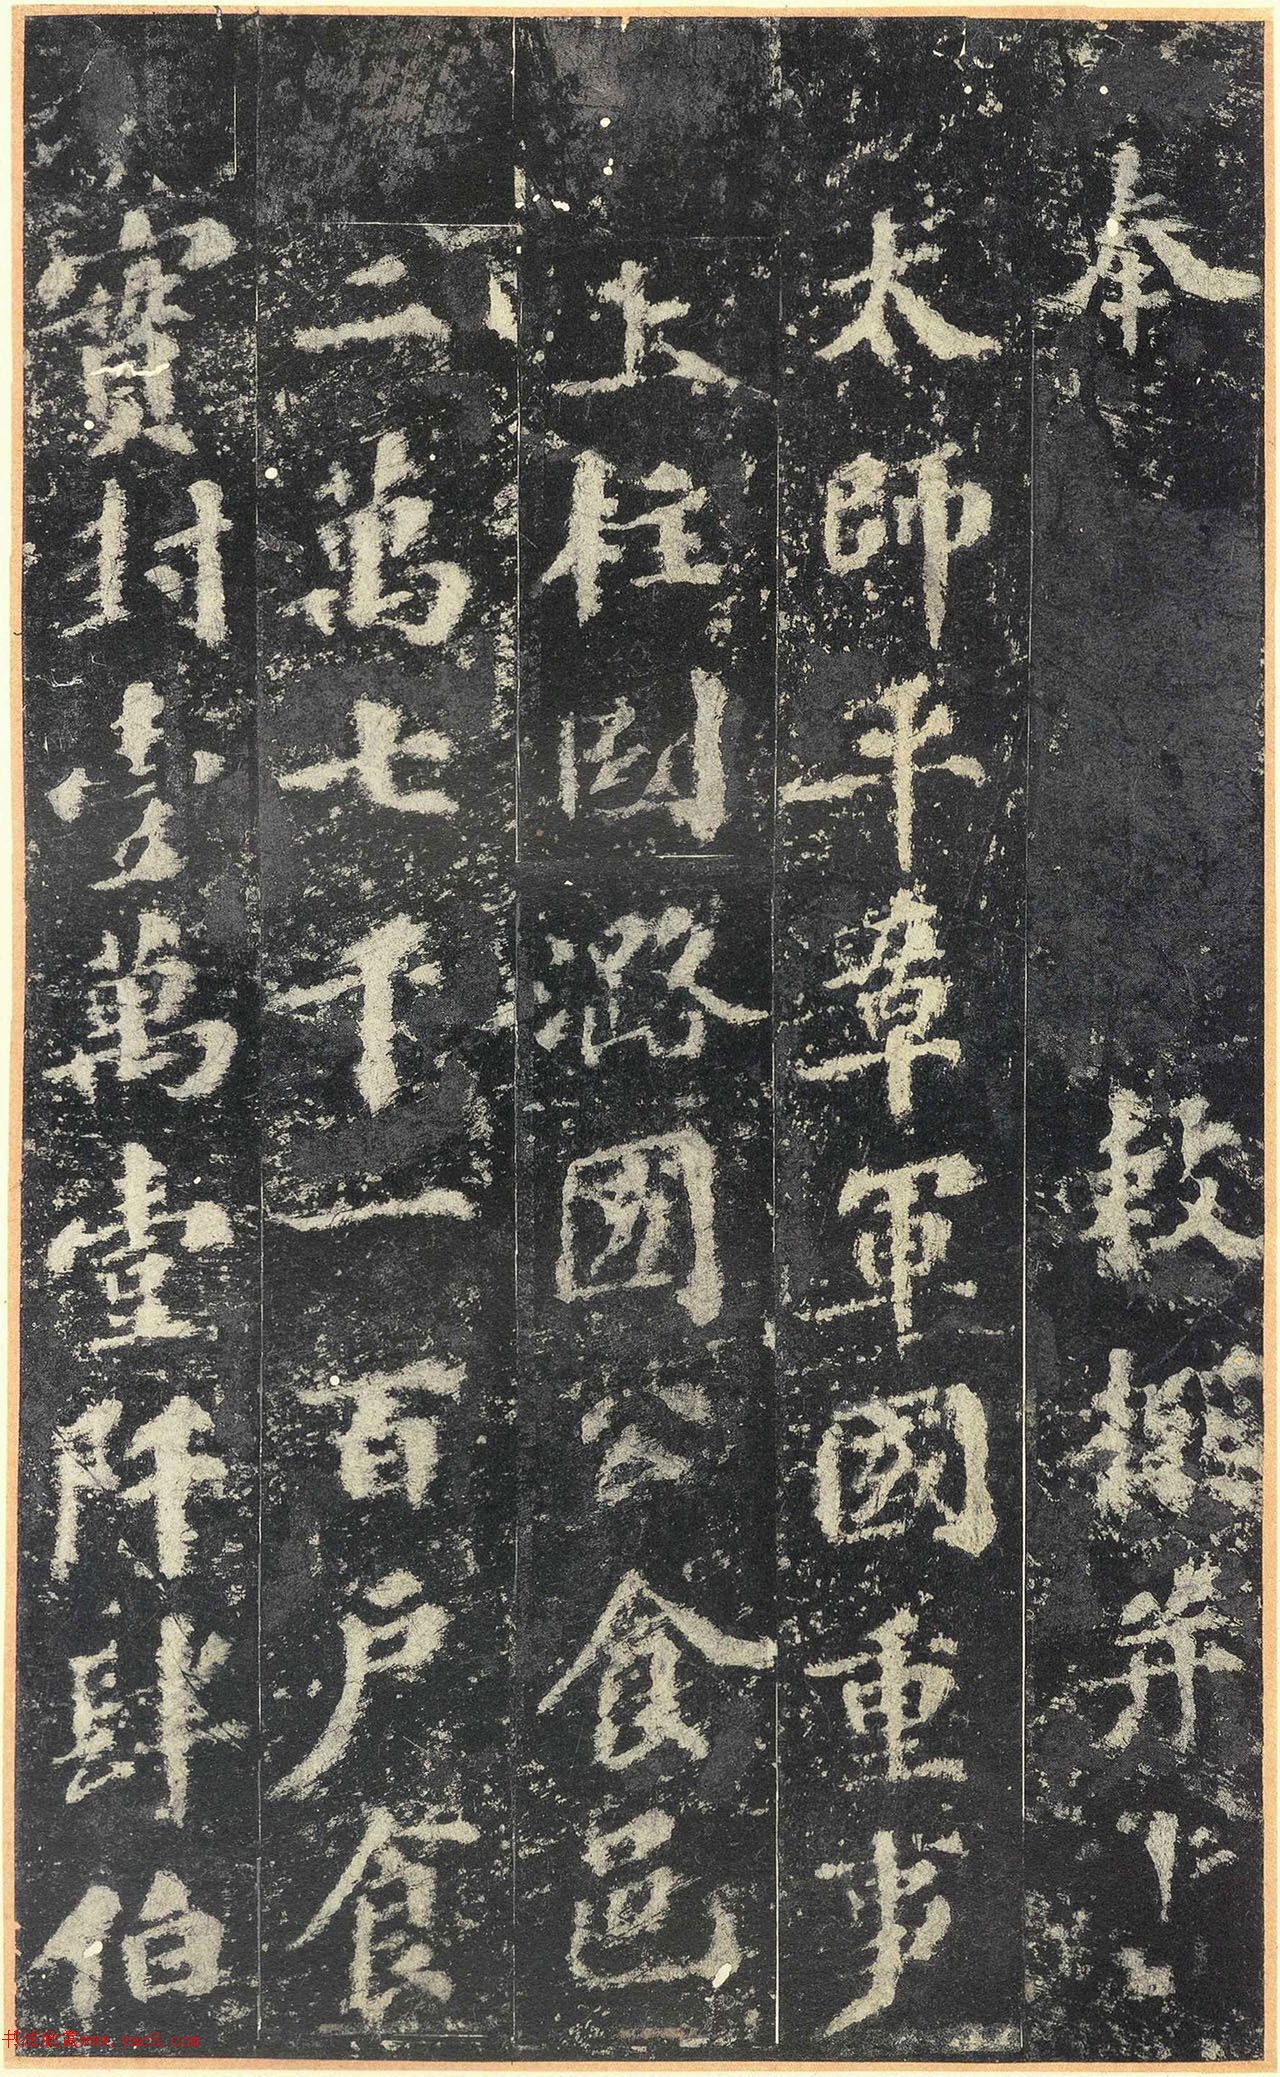 奉敕撰并
太師平章軍國重事
上柱國潞國公食邑
二萬七千一百户食
實封壹萬壹阡肆伯
书法欣赏www.yac8.com